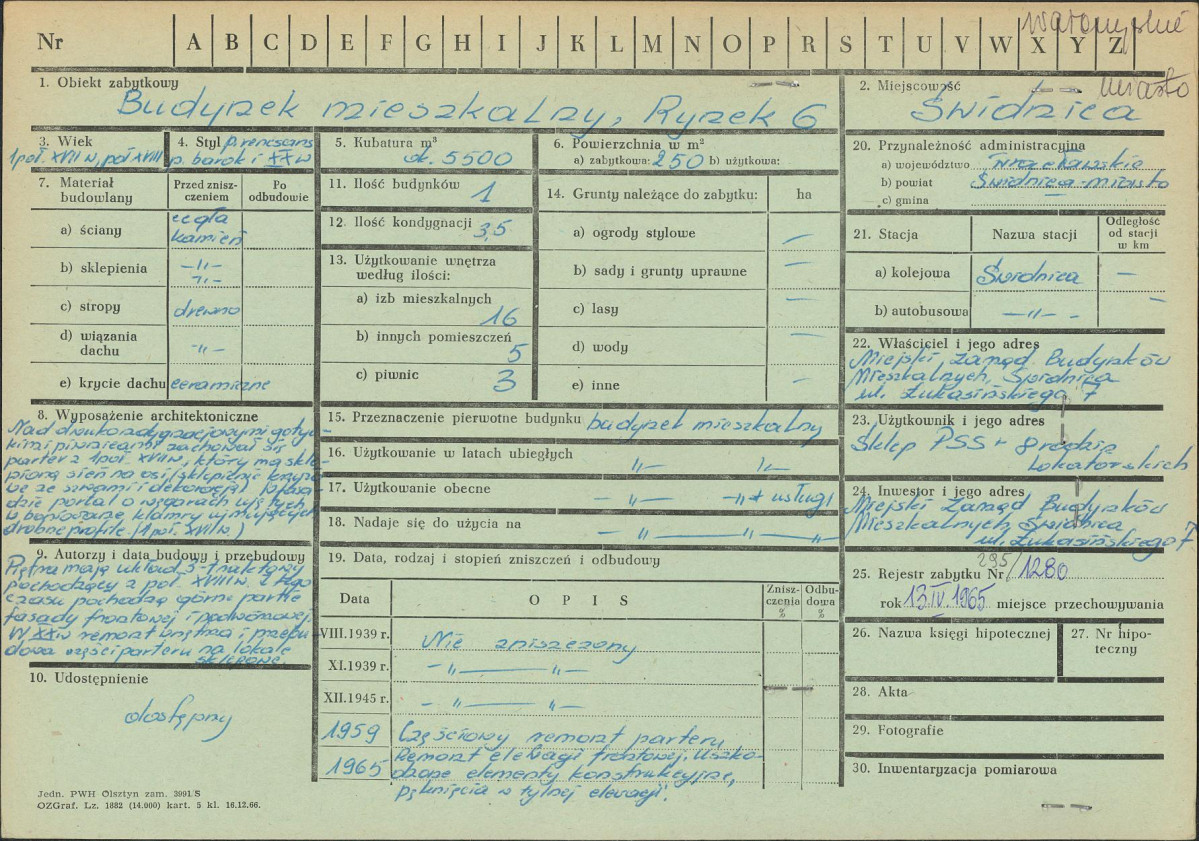 Nr A B C D E F G H I J K L M N O P R S T U V W X Y Z
miasto
1. Obiekt zabytkowy
Budynek mieszkalny, Rynek 6
2. Miejscowość
Świdnica
3. Wiek
1 poł. XVII w, poł XVIII
4. Styl p. renesans
p. barok i XX w
5. Kubatura m³
ok. 5500
6. Powierzchnia w m²
a) zabytkowa: 250 b) użytkowa:
20. Przynależność administracyjna
a) województwo wrocławskie
b) powiat Świdnica-miasto
c) gmina —
7. Materiał budowlany
Przed zniszczeniem
Po odbudowie
a) ściany cegła
kamień
b) sklepienia —"—
—"—
c) stropy drewno
d) wiązania dachu —"—
e) krycie dachu ceramiczne
11. Ilość budynków 1
12. Ilość kondygnacji 3,5
13. Użytkowanie wnętrza
według ilości:
a) izb mieszkalnych
16
b) innych pomieszczeń
5
c) piwnic 3
14. Grunty należące do zabytku: ha
a) ogrody stylowe —
b) sady i grunty uprawne —
c) lasy —
d) wody —
e) inne —
21. Stacja Nazwa stacji Odległość
od stacji
w km
a) kolejowa Świdnica —
b) autobusowa —"— —
22. Właściciel i jego adres
Miejski Zarząd Budynków
Mieszkalnych, Świdnica
ul. Łukasińskiego 7
8. Wyposażenie architektoniczne
Nad dwukondygnacjowymi goty-
kimi piwnicami zachował się
parter z 1 poł. XVII w, który ma skle-
pioną sień na osi (sklepienie krzyżo-
we ze szwami i dekoracją). W fasa-
dzie portal o węgarach ujętych
w boniowane klamry ujmujących
drobne profile (1 poł. XVII w.)
15. Przeznaczenie pierwotne budynku budynek mieszkalny
16. Użytkowanie w latach ubiegłych —"— —"—
17. Użytkowanie obecne —"— —"— + usługi
18. Nadaje się do użycia na —"— —"—
23. Użytkownik i jego adres
Sklep PSS + 8 rodzin
lokatorskich
24. Inwestor i jego adres
Miejski Zarząd Budynków
Mieszkalnych, Świdnica
ul. Łukasińskiego 7
9. Autorzy i data budowy i przebudowy
Piętra mają układ 3-traktowy
pochodzący z poł. XVIII w. Z tego
czasu pochodzą górne partie
fasady frontowej i podwórzowej.
W XX w remont wnętrza i przebu-
dowa części parteru na lokale
sklepowe.
19. Data, rodzaj i stopień zniszczeń i odbudowy
Data OPIS Zniszczenia % Odbudowa %
VIII.1939 r. Nie zniszczony
XI.1939 r. —"— —"—
XII.1945 r. —"— —"—
1959 Częściowy remont parteru
1965 Remont elewacji frontowej. Uszko-
dzone elementy konstrukcyjne,
pęknięcia w tylnej elewacji.
25. Rejestr zabytku Nr 295/1280
rok 13.IV.1965 miejsce przechowywania
26. Nazwa księgi hipotecznej
27. Nr hipoteczny
28. Akta
29. Fotografie
30. Inwentaryzacja pomiarowa
10. Udostępnienie
dostępny
Jedn. PWH Olsztyn zam. 3991/S
OZGraf. Lz. 1882 (14.000) kart. 5 kl. 16.12.66.